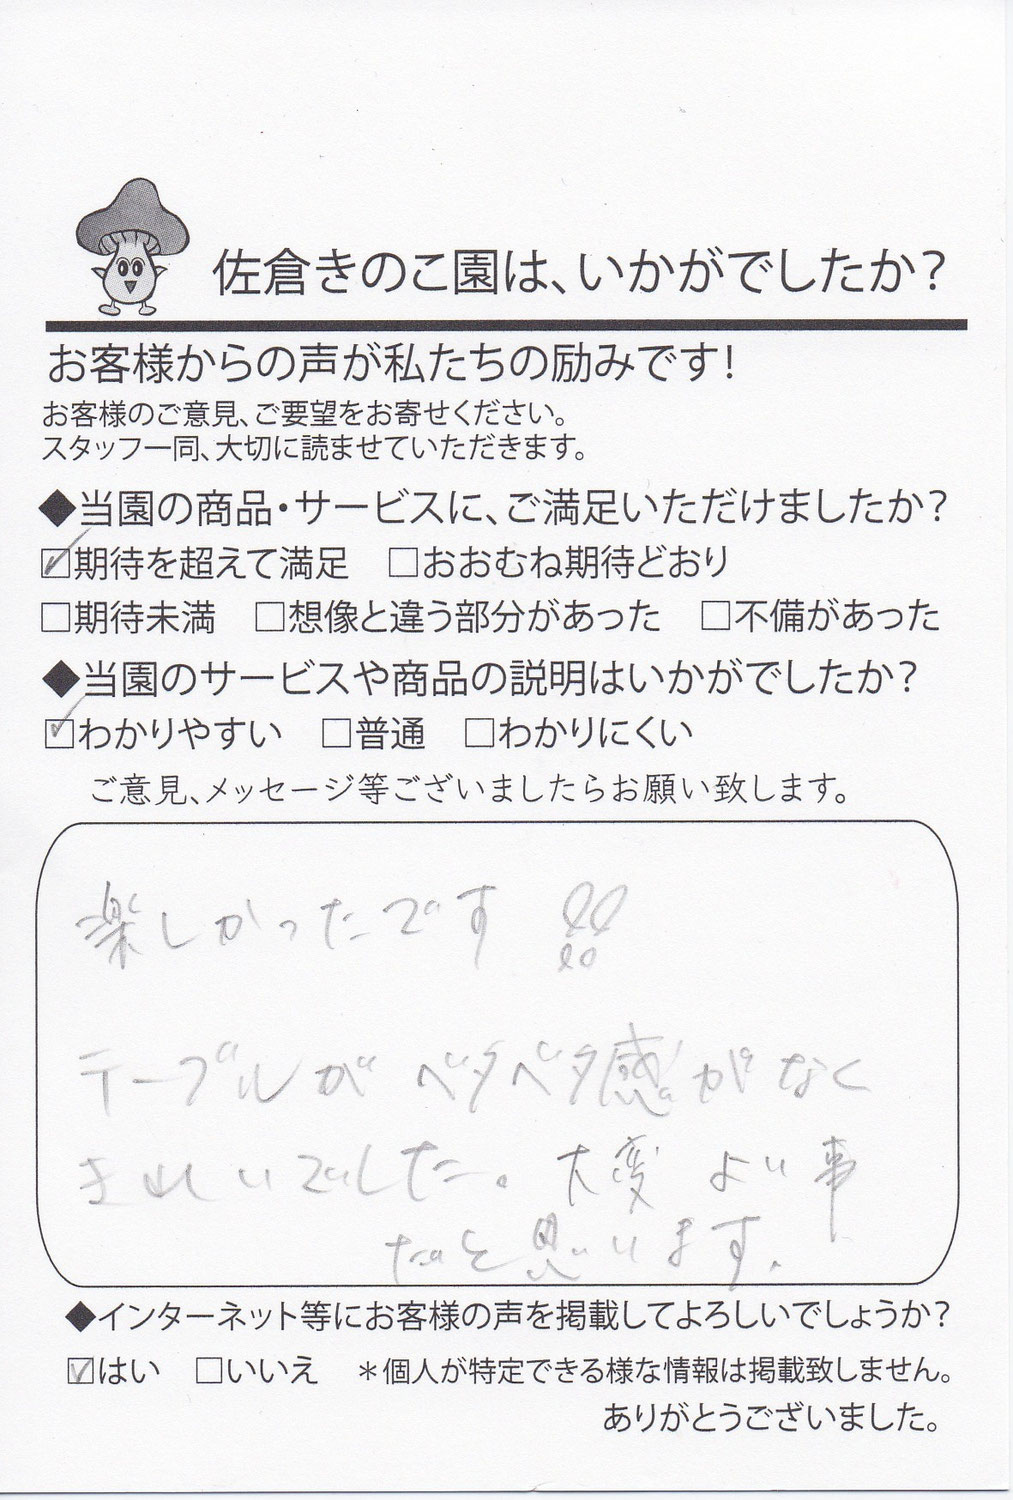 佐倉きのこ園は、いかがでしたか?
お客様からの声が私たちの励みです!
お客様のご意見、ご要望をお寄せください。
スタッフ一同、大切に読ませていただきます。
◆当園の商品・サービスに、ご満足いただけましたか?
☑期待を超えて満足 □おおむね期待どおり
□期待未満 □想像と違う部分があった □不備があった
◆当園のサービスや商品の説明はいかがでしたか?
☑わかりやすい □普通 □わかりにくい
ご意見、メッセージ等ございましたらお願い致します。
楽しかったです!!
テーブルがベタベタ感がなく
きれいでした。大変よい事
だと思います.
◆インターネット等にお客様の声を掲載してよろしいでしょうか?
☑はい □いいえ *個人が特定できる様な情報は掲載致しません。
ありがとうございました。